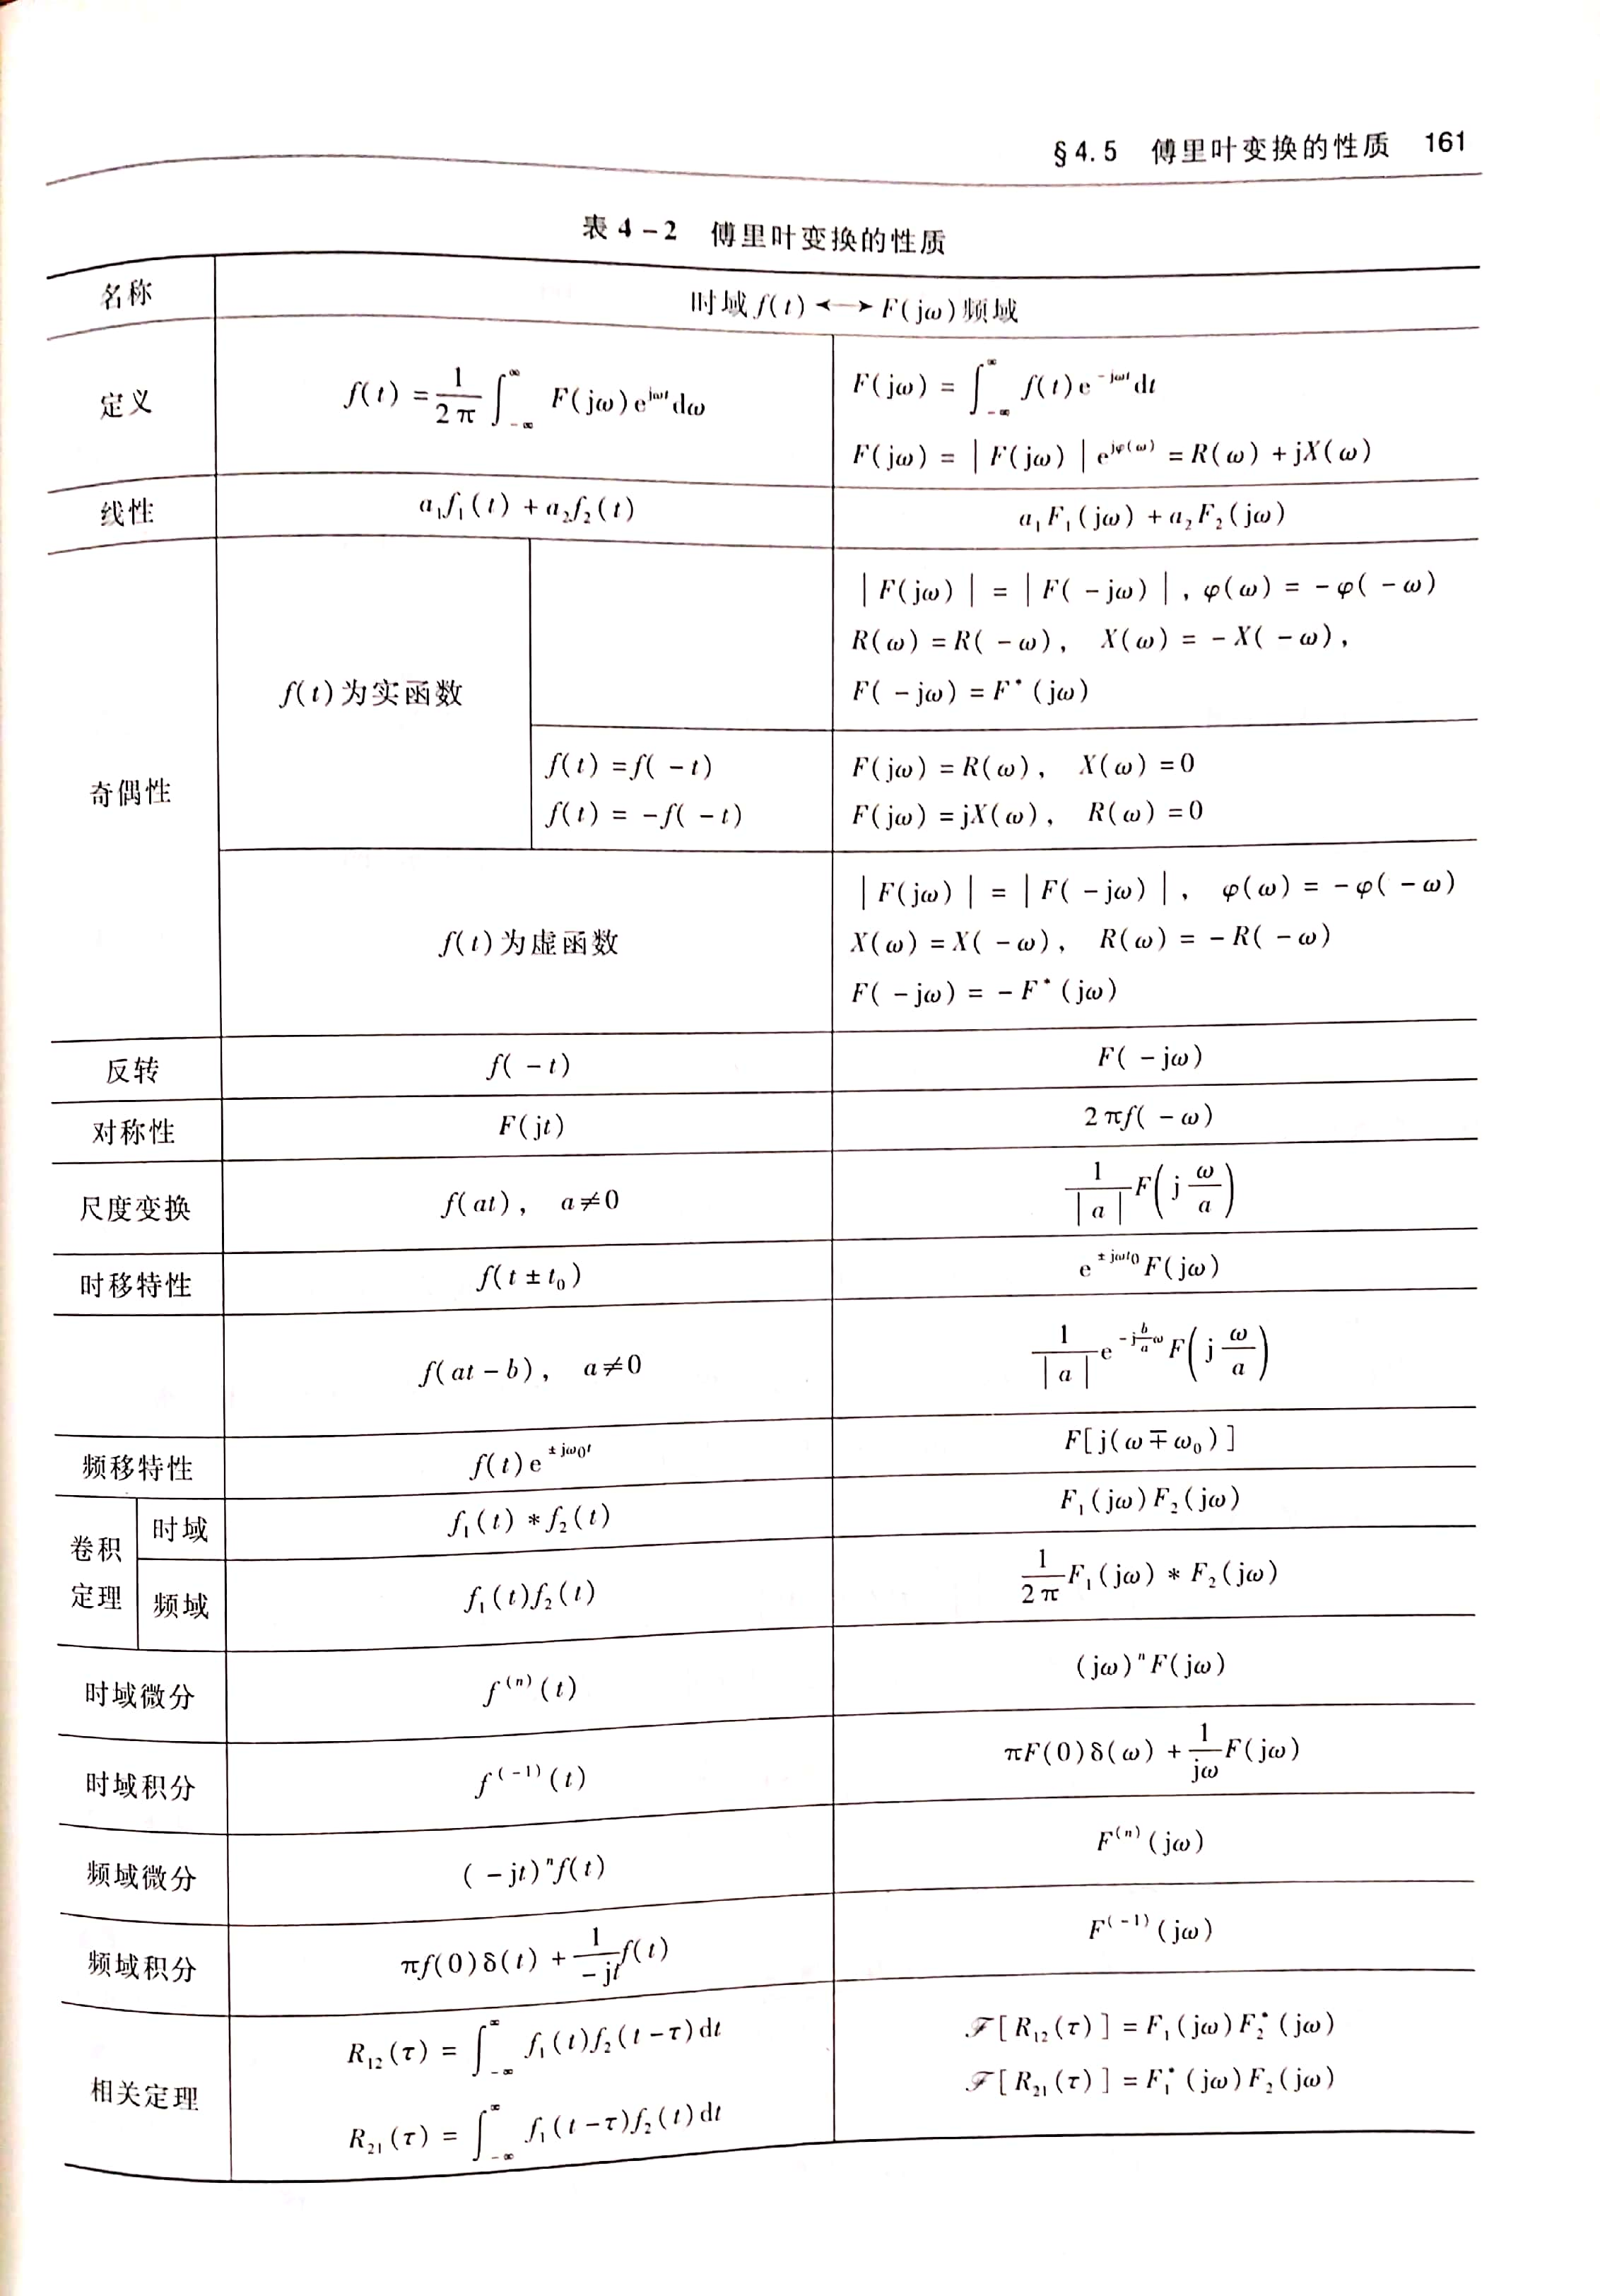 §4.5 傅里叶变换的性质 161
表 4-2 傅里叶变换的性质
名称 时域 f(t) ←→ F(jω) 频域
定义 f(t) = \frac{1}{2π} \int_{-∞}^{∞} F(jω)e^{jωt}dω F(jω) = \int_{-∞}^{∞} f(t)e^{-jωt}dt
F(jω) = |F(jω)|e^{jφ(ω)} = R(ω) + jX(ω)
线性 a_1f_1(t) + a_2f_2(t) a_1F_1(jω) + a_2F_2(jω)
奇偶性 f(t)为实函数 |F(jω)| = |F(-jω)|, φ(ω) = -φ(-ω)
R(ω) = R(-ω), X(ω) = -X(-ω),
F(-jω) = F^*(jω)
f(t) = f(-t) F(jω) = R(ω), X(ω) = 0
f(t) = -f(-t) F(jω) = jX(ω), R(ω) = 0
f(t)为虚函数 |F(jω)| = |F(-jω)|, φ(ω) = -φ(-ω)
X(ω) = X(-ω), R(ω) = -R(-ω)
F(-jω) = -F^*(jω)
反转 f(-t) F(-jω)
对称性 F(jt) 2πf(-ω)
尺度变换 f(at), a≠0 \frac{1}{|a|}F(j\frac{ω}{a})
时移特性 f(t±t_0) e^{±jωt_0}F(jω)
f(at-b), a≠0 \frac{1}{|a|}e^{-j\frac{b}{a}ω}F(j\frac{ω}{a})
频移特性 f(t)e^{±jω_0t} F[j(ω∓ω_0)]
卷积定理 时域 f_1(t)*f_2(t) F_1(jω)F_2(jω)
频域 f_1(t)f_2(t) \frac{1}{2π}F_1(jω)*F_2(jω)
时域微分 f^{(n)}(t) (jω)^nF(jω)
时域积分 f^{(-1)}(t) πF(0)δ(ω) + \frac{1}{jω}F(jω)
频域微分 (-jt)^nf(t) F^{(n)}(jω)
频域积分 πf(0)δ(t) + \frac{1}{-jt}f(t) F^{(-1)}(jω)
相关定理 R_{12}(τ) = \int_{-∞}^{∞} f_1(t)f_2(t-τ)dt ℱ[R_{12}(τ)] = F_1(jω)F_2^*(jω)
R_{21}(τ) = \int_{-∞}^{∞} f_1(t-τ)f_2(t)dt ℱ[R_{21}(τ)] = F_1^*(jω)F_2(jω)